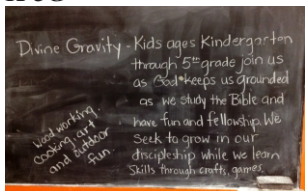 Divine Gravity - Kids ages Kindergarten
through 5th grade join us
as God keeps us grounded
as we study the Bible and
have fun and fellowship. We
Seek to grow in our
discipleship while we learn
Skills through crafts, games,
woodworking,
cooking, art
and outdoor
fun.